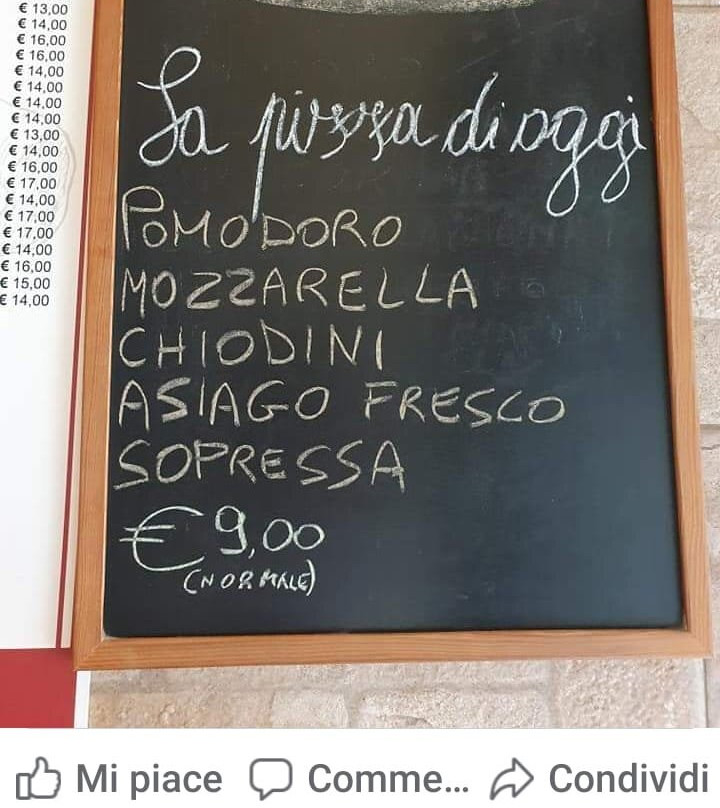 € 13,00
€ 14,00
€ 16,00
€ 16,00
€ 14,00
€ 14,00
€ 14,00
€ 14,00
€ 13,00
€ 14,00
€ 16,00
€ 17,00
€ 14,00
€ 17,00
€ 17,00
€ 14,00
€ 16,00
€ 15,00
€ 14,00
La pizza di oggi
POMODORO
MOZZARELLA
CHIODINI
ASIAGO FRESCO
SOPRESSA
€ 9,00
(NORMALE)
Mi piace Comme... Condividi